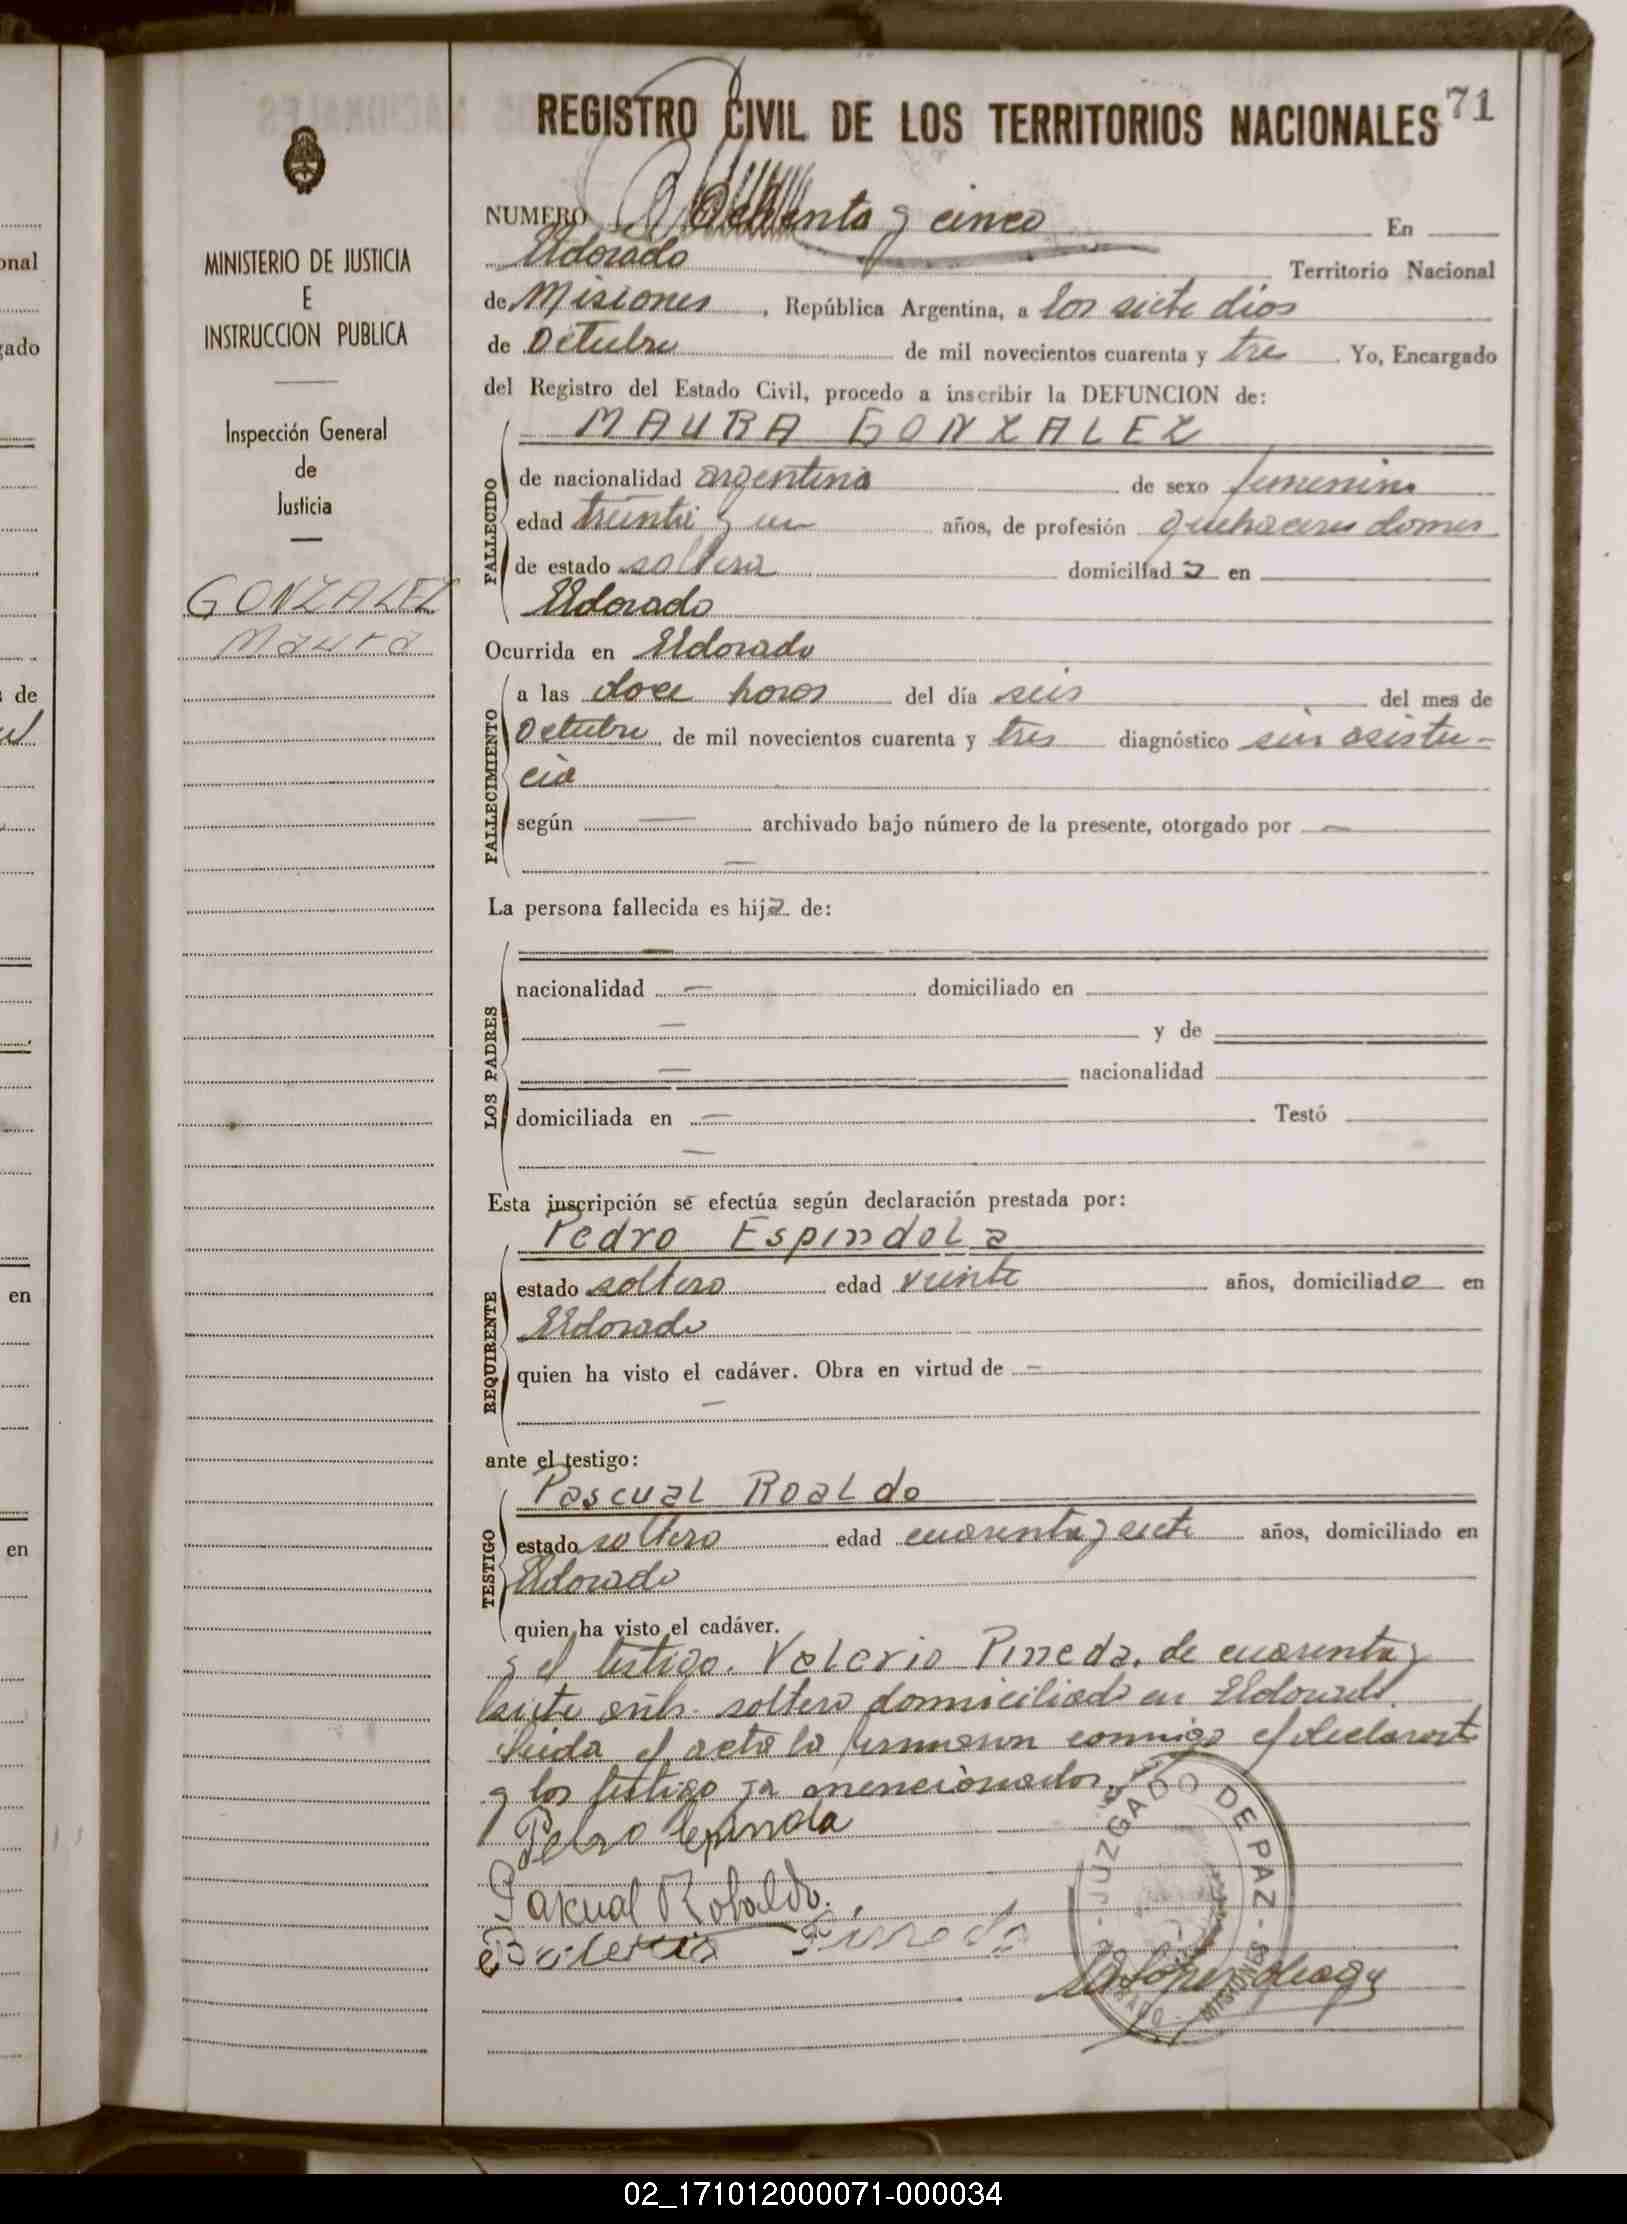 REGISTRO CIVIL DE LOS TERRITORIOS NACIONALES 71
MINISTERIO DE JUSTICIA
E
INSTRUCCION PUBLICA
Inspección General
de
Justicia
GONZALEZ
Maura
NUMERO Ochenta y cinco En
Eldorado Territorio Nacional
de Misiones, República Argentina, a los siete dias
de Octubre de mil novecientos cuarenta y tres. Yo, Encargado
del Registro del Estado Civil, procedo a inscribir la DEFUNCION de:
MAURA GONZALEZ
FALLECIDO
de nacionalidad argentina de sexo femenino
edad treinta y un años, de profesión quehaceres domes
de estado soltera domiciliada en
Eldorado
Ocurrida en Eldorado
FALLECIMIENTO
a las doce horas del día seis del mes de
Octubre de mil novecientos cuarenta y tres diagnóstico sin asisten-
cia
según — archivado bajo número de la presente, otorgado por —
—
La persona fallecida es hija de:
LOS PADRES
—
nacionalidad — domiciliado en
— y de
— nacionalidad
domiciliada en — Testó
—
Esta inscripción se efectúa según declaración prestada por:
Pedro Espindola
REQUIRENTE
estado soltero edad veinte años, domiciliado en
Eldorado
quien ha visto el cadáver. Obra en virtud de —
—
ante el testigo:
Pascual Roaldo
TESTIGO
estado soltero edad cuarenta y siete años, domiciliado en
Eldorado
quien ha visto el cadáver.
y el testigo. Valerio Pineda, de cuarenta y
siete años. soltero domiciliado en Eldorado.
Leida el acta la firmaron conmigo el declarante
y los testigo ya mencionados.
Pedro Espindola
Pascual Robaldo.
Balerio Pineda
JUZGADO DE PAZ - MISIONES
onal
gado
de
en
en
02_171012000071-000034